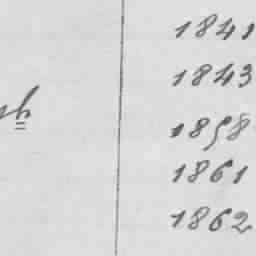 1841
1843
1858
1861
1862